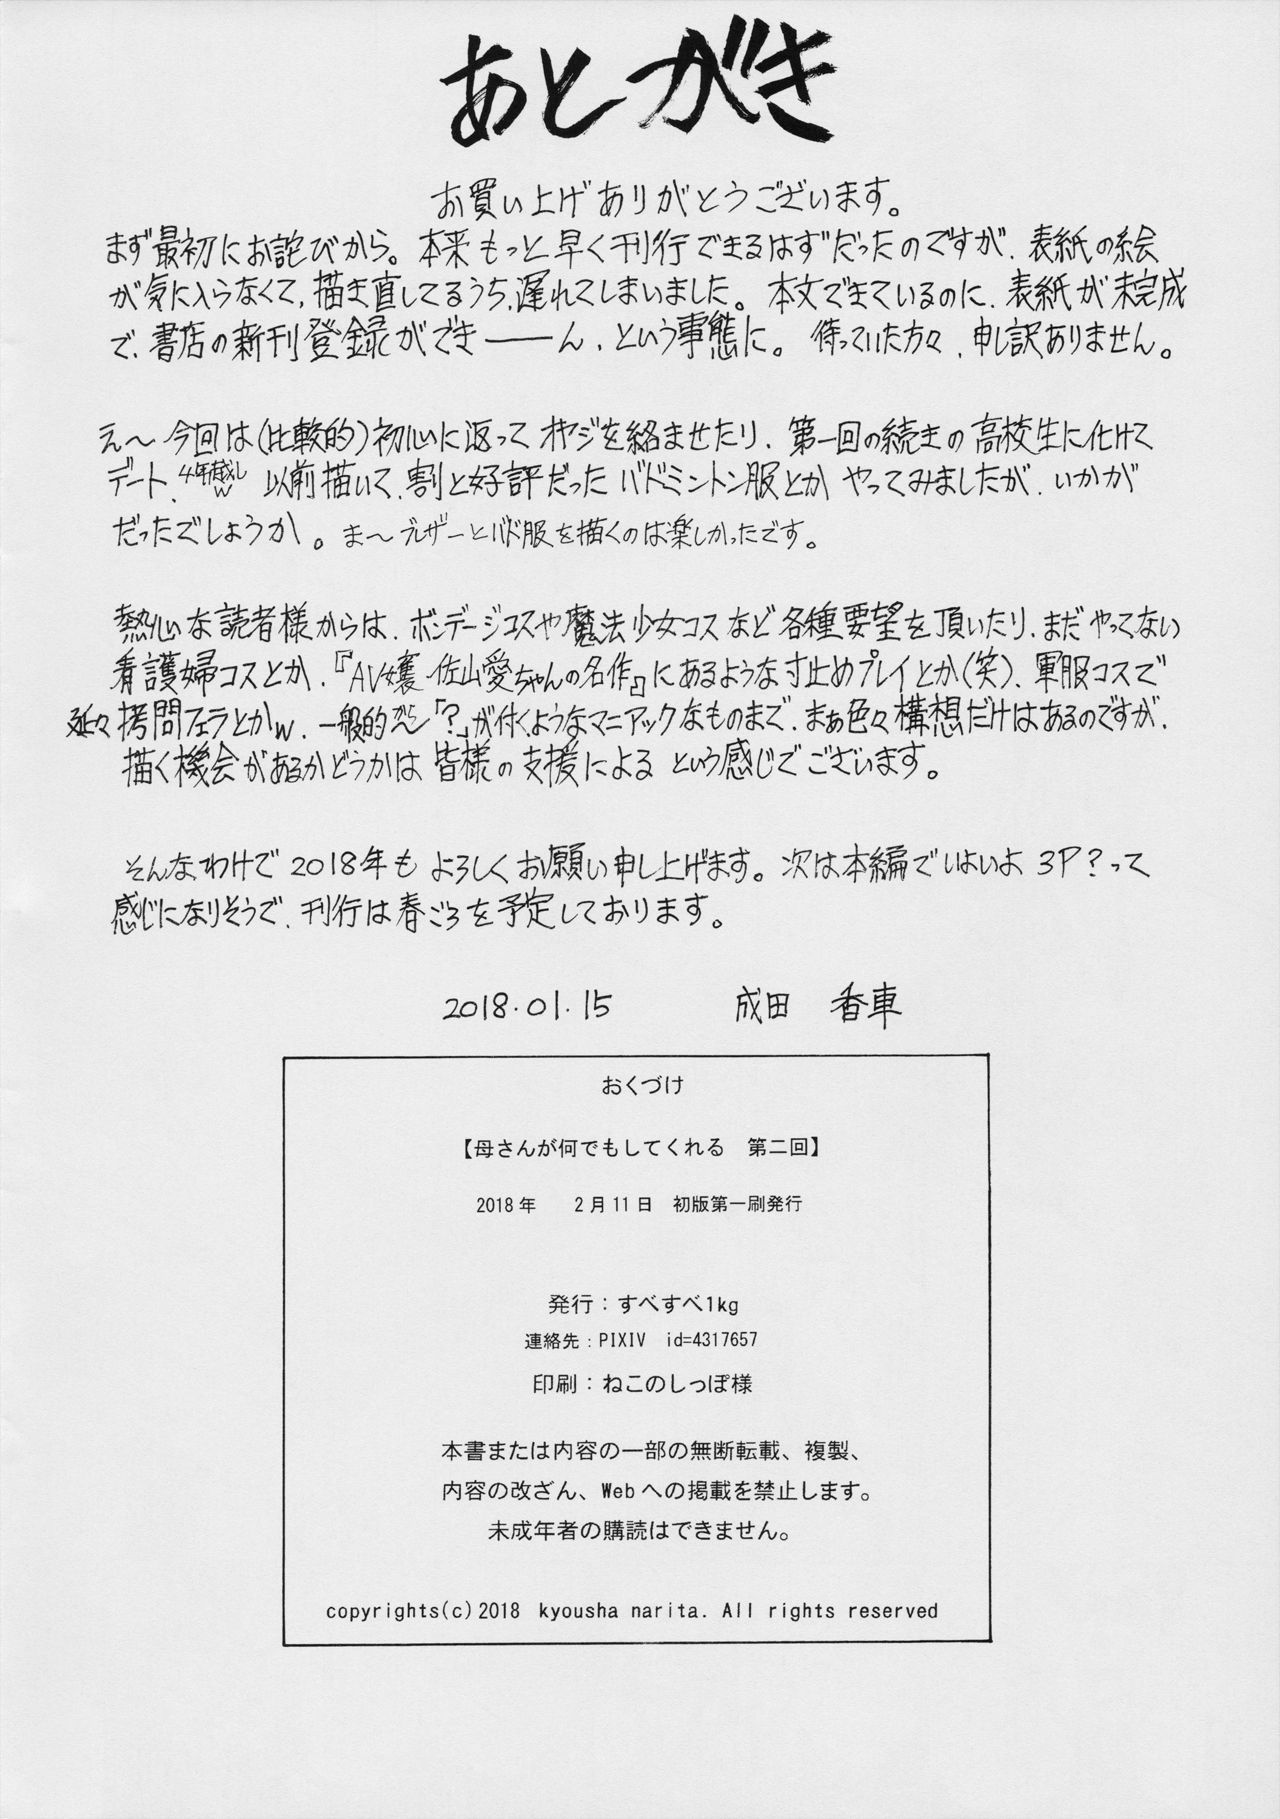 あとがき
お買い上げありがとうございます。
まず最初にお詫びから。本来もっと早く刊行できるはずだったのですが、表紙の絵
が気に入らなくて、描き直してるうち、遅れてしまいました。本文できているのに、表紙が未完成
で、書店の新刊登録ができ――ん、という事態に。待っていた方々、申し訳ありません。
え～今回は(比較的)初心に返ってオヤジを絡ませたり、第一回の続きの高校生に化けて
デート、4年越しw 以前描いて、割と好評だったバドミントン服とかやってみましたが、いかが
だったでしょうか。ま～ブレザーとバド服を描くのは楽しかったです。
熱心な読者様からは、ボンデージコスや魔法少女コスなど各種要望を頂いたり、まだやってない
看護婦コスとか、『AV嬢 佐山愛ちゃんの名作』にあるような寸止めプレイとか(笑)、軍服コスで
延々拷問フェラとかw、一般的に「?」が付くようなマニアックなものまで、まぁ色々構想だけはあるのですが、
描く機会があるかどうかは皆様の支援によるという感じでございます。
そんなわけで2018年もよろしくお願い申し上げます。次は本編でいよいよ3P?って
感じになりそうで、刊行は春ごろを予定しております。
2018.01.15 成田 香車
おくづけ
【母さんが何でもしてくれる 第二回】
2018年 2月11日 初版第一刷発行
発行：すべすべ1kg
連絡先：PIXIV id=4317657
印刷：ねこのしっぽ様
本書または内容の一部の無断転載、複製、
内容の改ざん、Webへの掲載を禁止します。
未成年者の購読はできません。
copyrights(c)2018 kyousha narita. All rights reserved